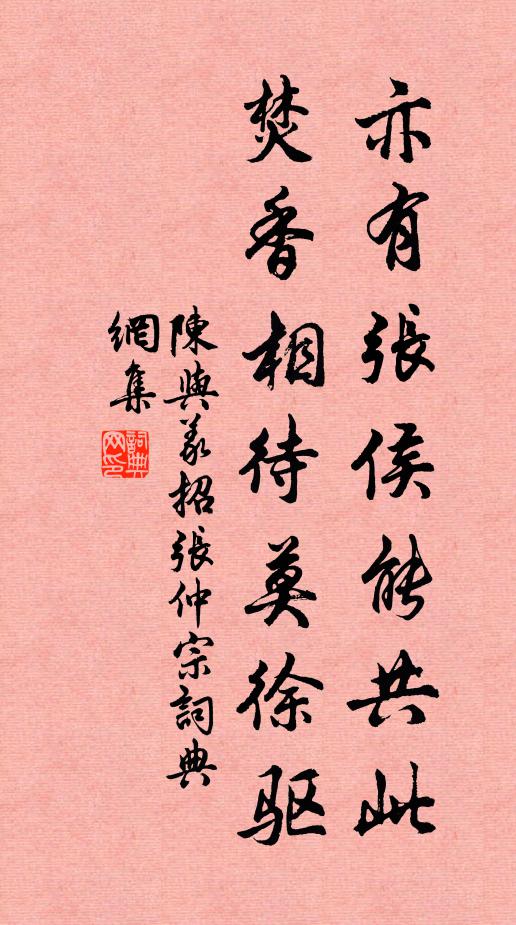 亦有張侯能共此
焚香相待莫徐驱
陳與義招張仲宗詞典
網集
詞典网印